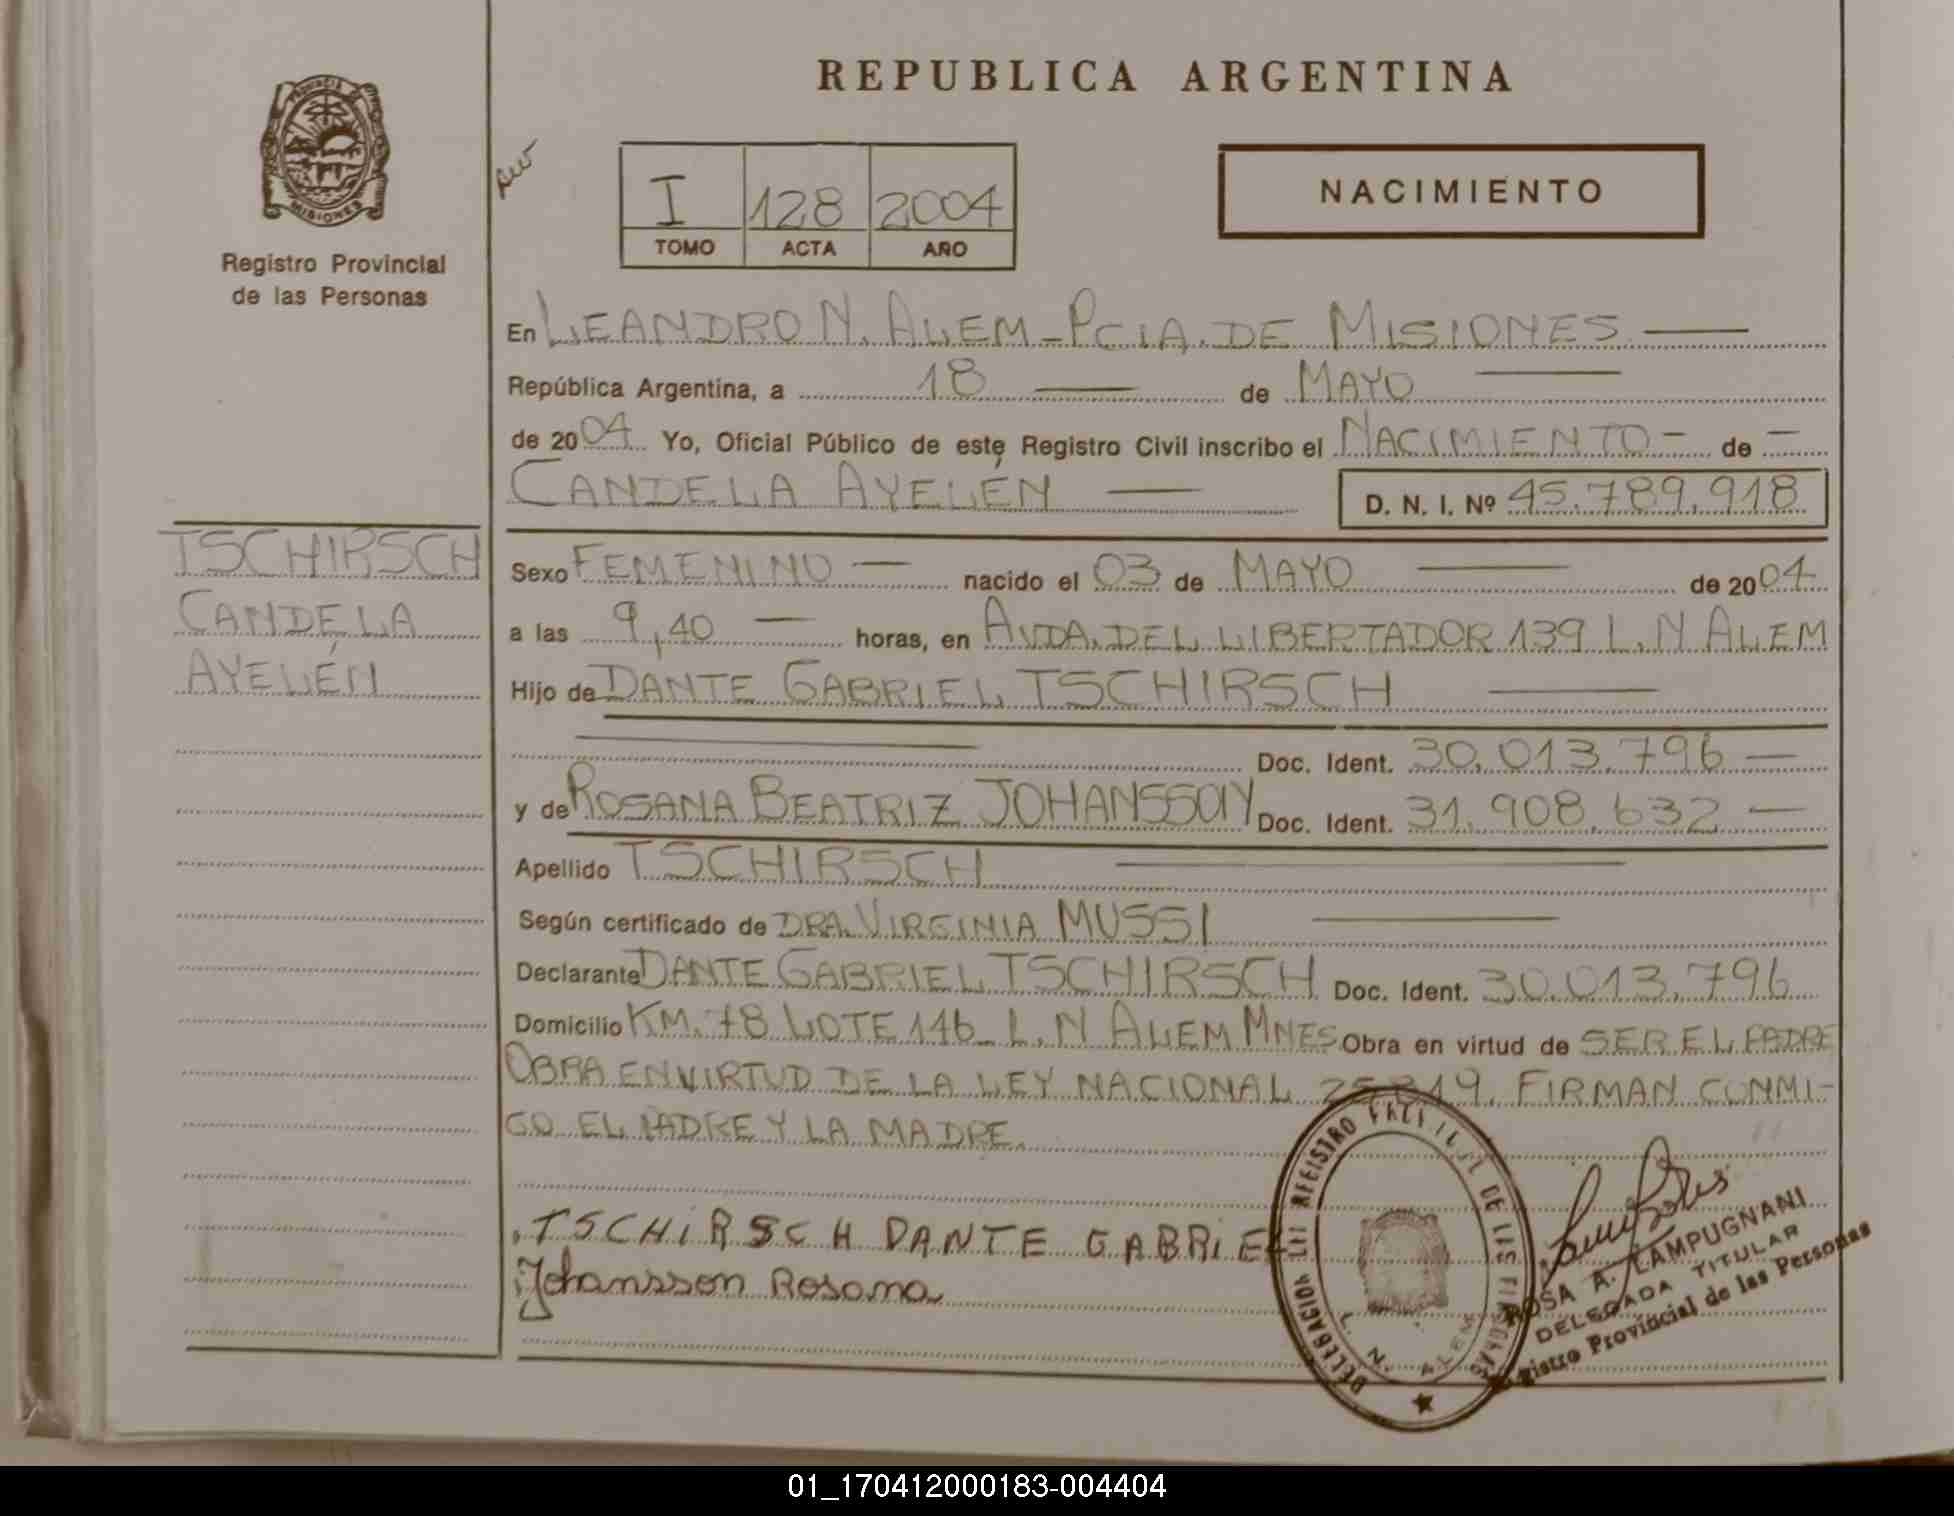 REPUBLICA ARGENTINA
PROVINCIA DE
MISIONES
Registro Provincial
de las Personas
I 128 2004
TOMO ACTA AÑO
NACIMIENTO
En LEANDRO N. ALEM - PCIA. DE MISIONES
República Argentina, a 18 de MAYO
de 2004 Yo, Oficial Público de este Registro Civil inscribo el NACIMIENTO - de -
CANDELA AYELÉN D. N. I. Nº 45.789.918
TSCHIRSCH
CANDELA
AYELÉN
Sexo FEMENINO nacido el 03 de MAYO de 2004
a las 9,40 horas, en AVDA. DEL LIBERTADOR 139 L.N ALEM
Hijo de DANTE GABRIEL TSCHIRSCH
Doc. Ident. 30.013.796
y de ROSANA BEATRIZ JOHANSSON Doc. Ident. 31.908.632
Apellido TSCHIRSCH
Según certificado de DRA. VIRGINIA MUSSI
Declarante DANTE GABRIEL TSCHIRSCH Doc. Ident. 30.013.796
Domicilio KM. 78 LOTE 146 L.N ALEM MNES Obra en virtud de SER EL PADRE
OBRA EN VIRTUD DE LA LEY NACIONAL FIRMAN CONMI-
GO EL PADRE Y LA MADRE.
TSCHIRSCH DANTE GABRIEL
Johansson Rosana
DELEGACION REGISTRO DE LAS PERSONAS
L. N. ALEM
ROSA A. LAMPUGNANI
DELEGADA TITULAR
Registro Provincial de las Personas
01_170412000183-004404